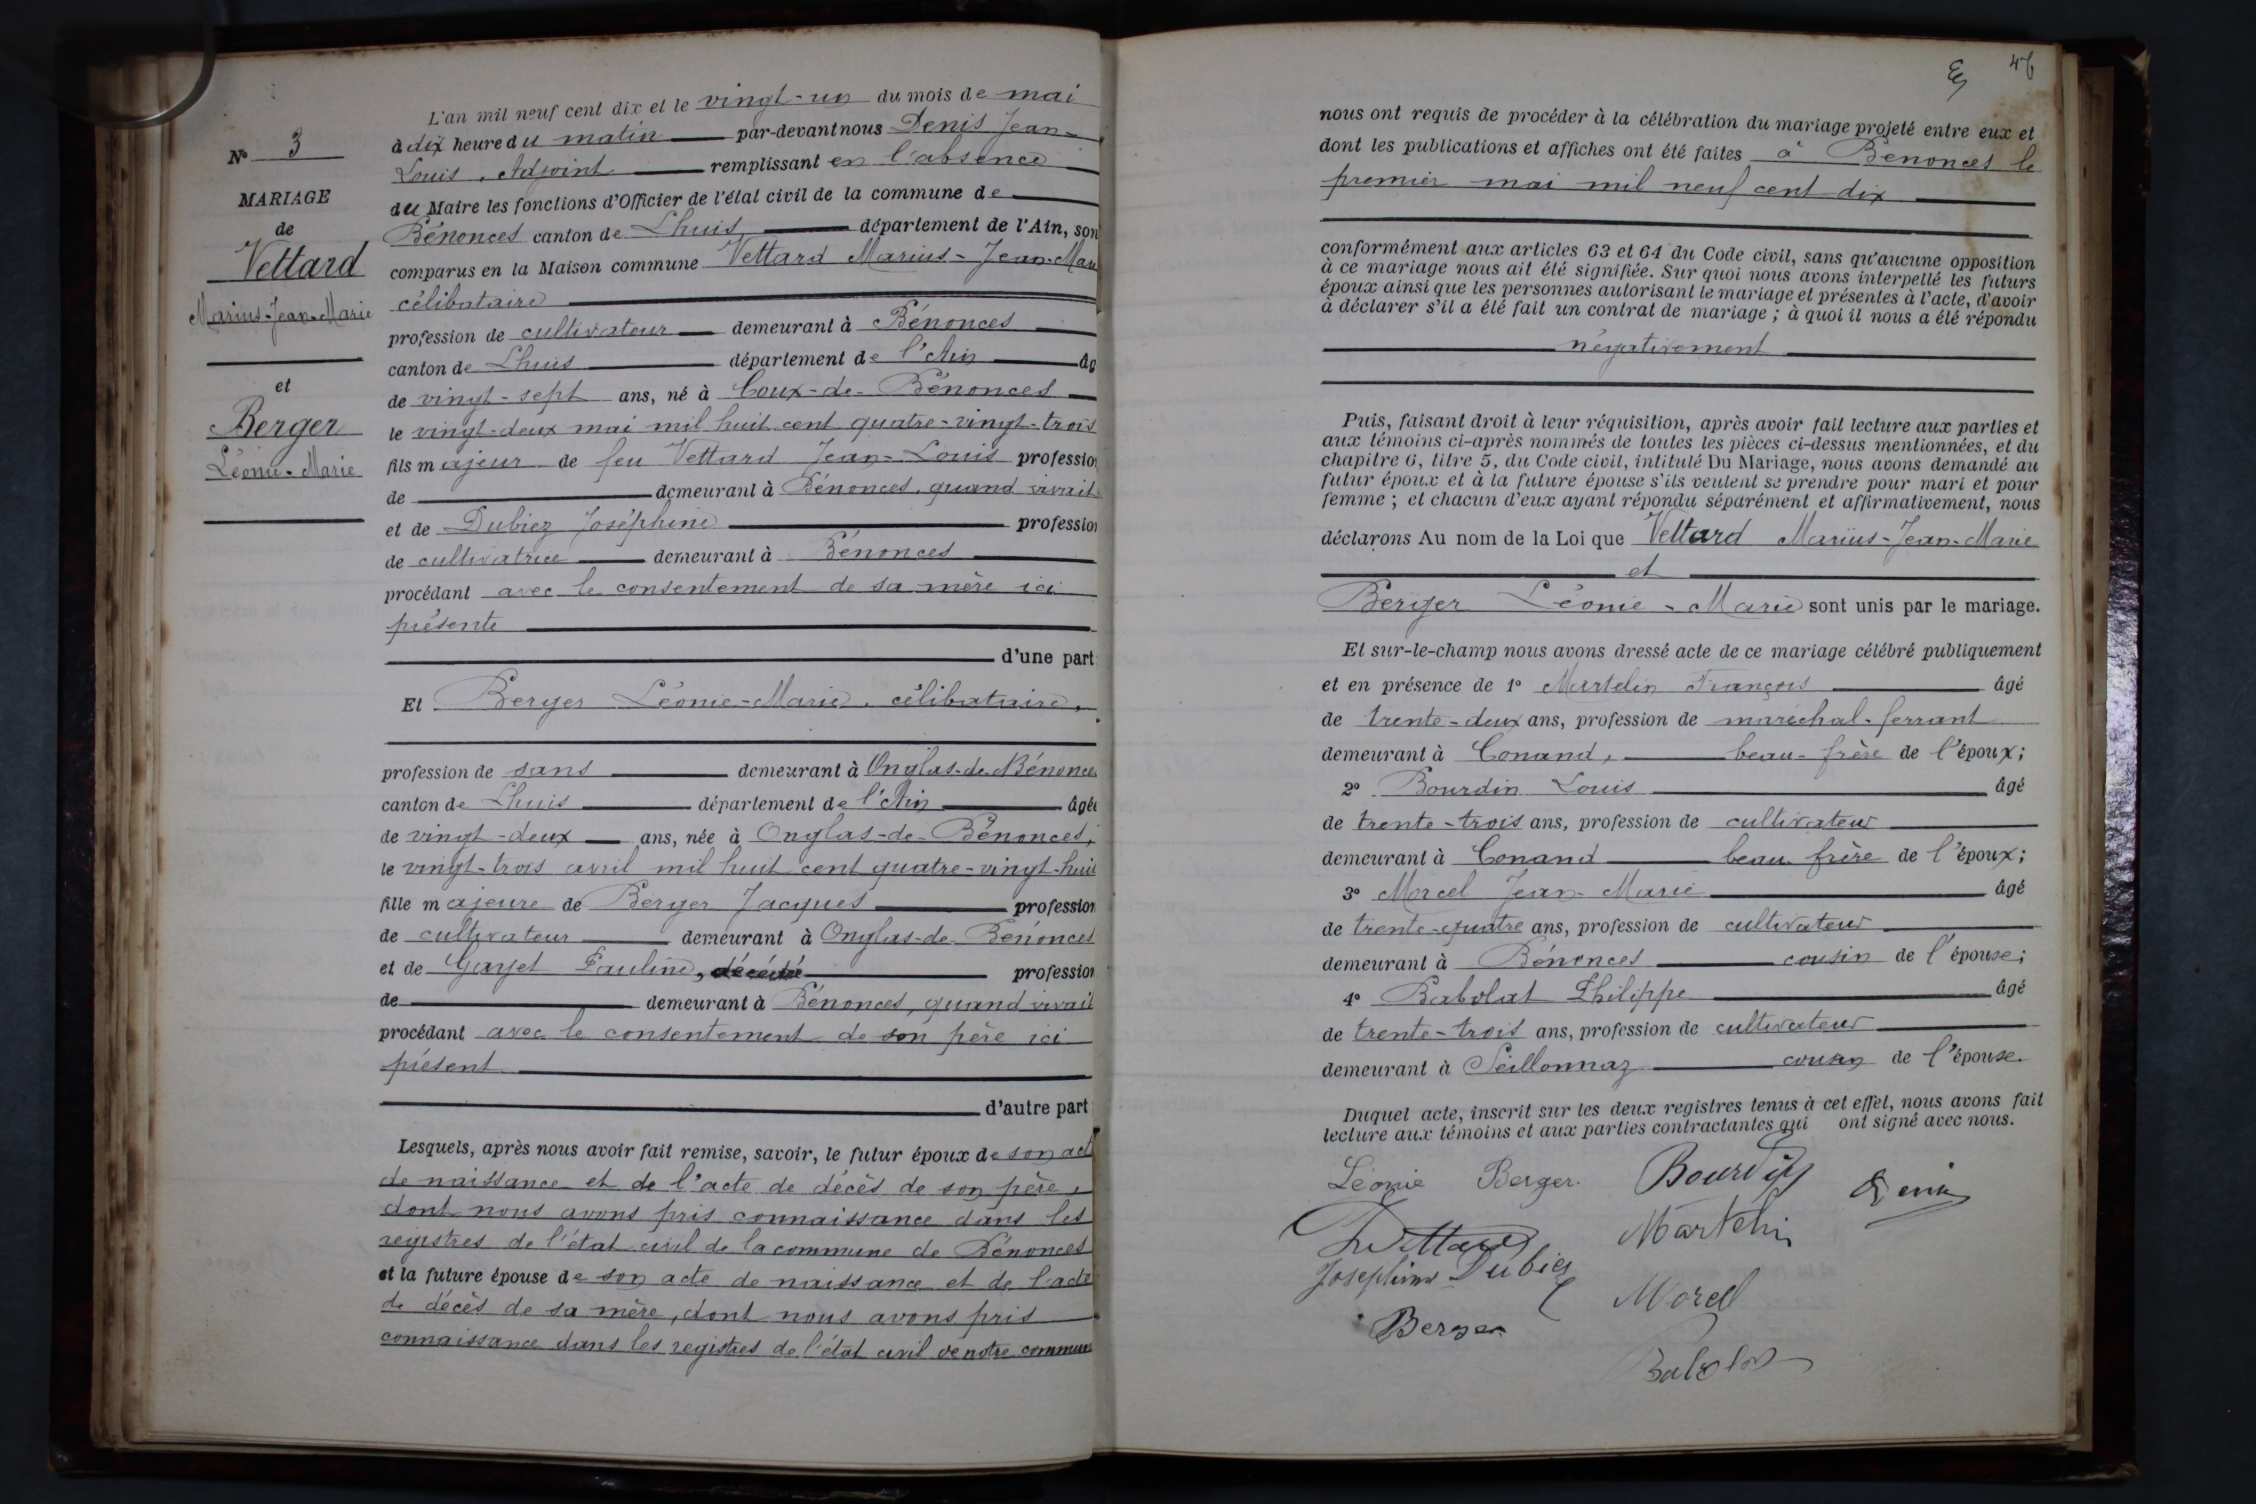 N° 3
MARIAGE
de
Vettard
Marius-Jean-Marie
et
Berger
Léonie-Marie
L'an mil neuf cent dix et le vingt-un du mois de mai
à dix heure du matin par-devant nous Denis Jean-
Louis, Adjoint remplissant en l'absence
du Maire les fonctions d'Officier de l'état civil de la commune de
Bénonces canton de Lhuis département de l'Ain, son
comparus en la Maison commune Vettard Marius-Jean-Mari
célibataire
profession de cultivateur demeurant à Bénonces
canton de Lhuis département de l'Ain âg
de vingt-sept ans, né à Coux-de-Bénonces
le vingt-deux mai mil huit cent quatre-vingt-trois
fils majeur de feu Vettard Jean-Louis profession
de demeurant à Bénonces, quand vivait
et de Dubiez Joséphine profession
de cultivatrice demeurant à Bénonces
procédant avec le consentement de sa mère ici
présente
d'une part
Et Berger Léonie-Marie, célibataire,
profession de sans demeurant à Onglas-de-Bénonces
canton de Lhuis département de l'Ain âgée
de vingt-deux ans, née à Onglas-de-Bénonces,
le vingt-trois avril mil huit cent quatre-vingt-huit
fille majeure de Berger Jacques profession
de cultivateur demeurant à Onglas-de-Bénonces
et de Gayet Pauline, décédée profession
de demeurant à Bénonces, quand vivait
procédant avec le consentement de son père ici
présent
d'autre part
Lesquels, après nous avoir fait remise, savoir, le futur époux de son act
de naissance et de l'acte de décès de son père,
dont nous avons pris connaissance dans les
registres de l'état civil de la commune de Bénonces
et la future épouse de son acte de naissance et de l'acte
de décès de sa mère, dont nous avons pris
connaissance dans les registres de l'état civil de notre commune
46
nous ont requis de procéder à la célébration du mariage projeté entre eux et
dont les publications et affiches ont été faites à Bénonces le
premier mai mil neuf cent dix
conformément aux articles 63 et 64 du Code civil, sans qu'aucune opposition
à ce mariage nous ait été signifiée. Sur quoi nous avons interpellé les futurs
époux ainsi que les personnes autorisant le mariage et présentes à l'acte, d'avoir
à déclarer s'il a été fait un contrat de mariage ; à quoi il nous a été répondu
négativement
Puis, faisant droit à leur réquisition, après avoir fait lecture aux parties et
aux témoins ci-après nommés de toutes les pièces ci-dessus mentionnées, et du
chapitre 6, titre 5, du Code civil, intitulé Du Mariage, nous avons demandé au
futur époux et à la future épouse s'ils veulent se prendre pour mari et pour
femme ; et chacun d'eux ayant répondu séparément et affirmativement, nous
déclarons Au nom de la Loi que Vettard Marius-Jean-Marie
et
Berger Léonie-Marie sont unis par le mariage.
Et sur-le-champ nous avons dressé acte de ce mariage célébré publiquement
et en présence de 1° Martelin François âgé
de trente-deux ans, profession de maréchal-ferrant
demeurant à Conand, beau-frère de l'époux;
2° Bourdin Louis âgé
de trente-trois ans, profession de cultivateur
demeurant à Conand beau frère de l'époux;
3° Morcel Jean-Marie âgé
de trente-quatre ans, profession de cultivateur
demeurant à Bénonces cousin de l'épouse;
4° Babolat Philippe âgé
de trente-trois ans, profession de cultivateur
demeurant à Seillonnaz cousin de l'épouse.
Duquel acte, inscrit sur les deux registres tenus à cet effet, nous avons fait
lecture aux témoins et aux parties contractantes qui ont signé avec nous.
Léonie Berger Bourdin Denis
Vettard Martelin
Joséphine Dubiez
Morcel
Berger
Babolat